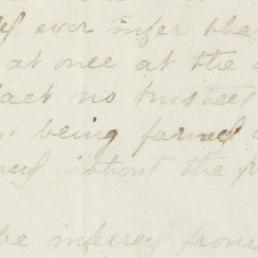 ever infer that
at once at the
fact no trustees
being formed
without the
be infered from